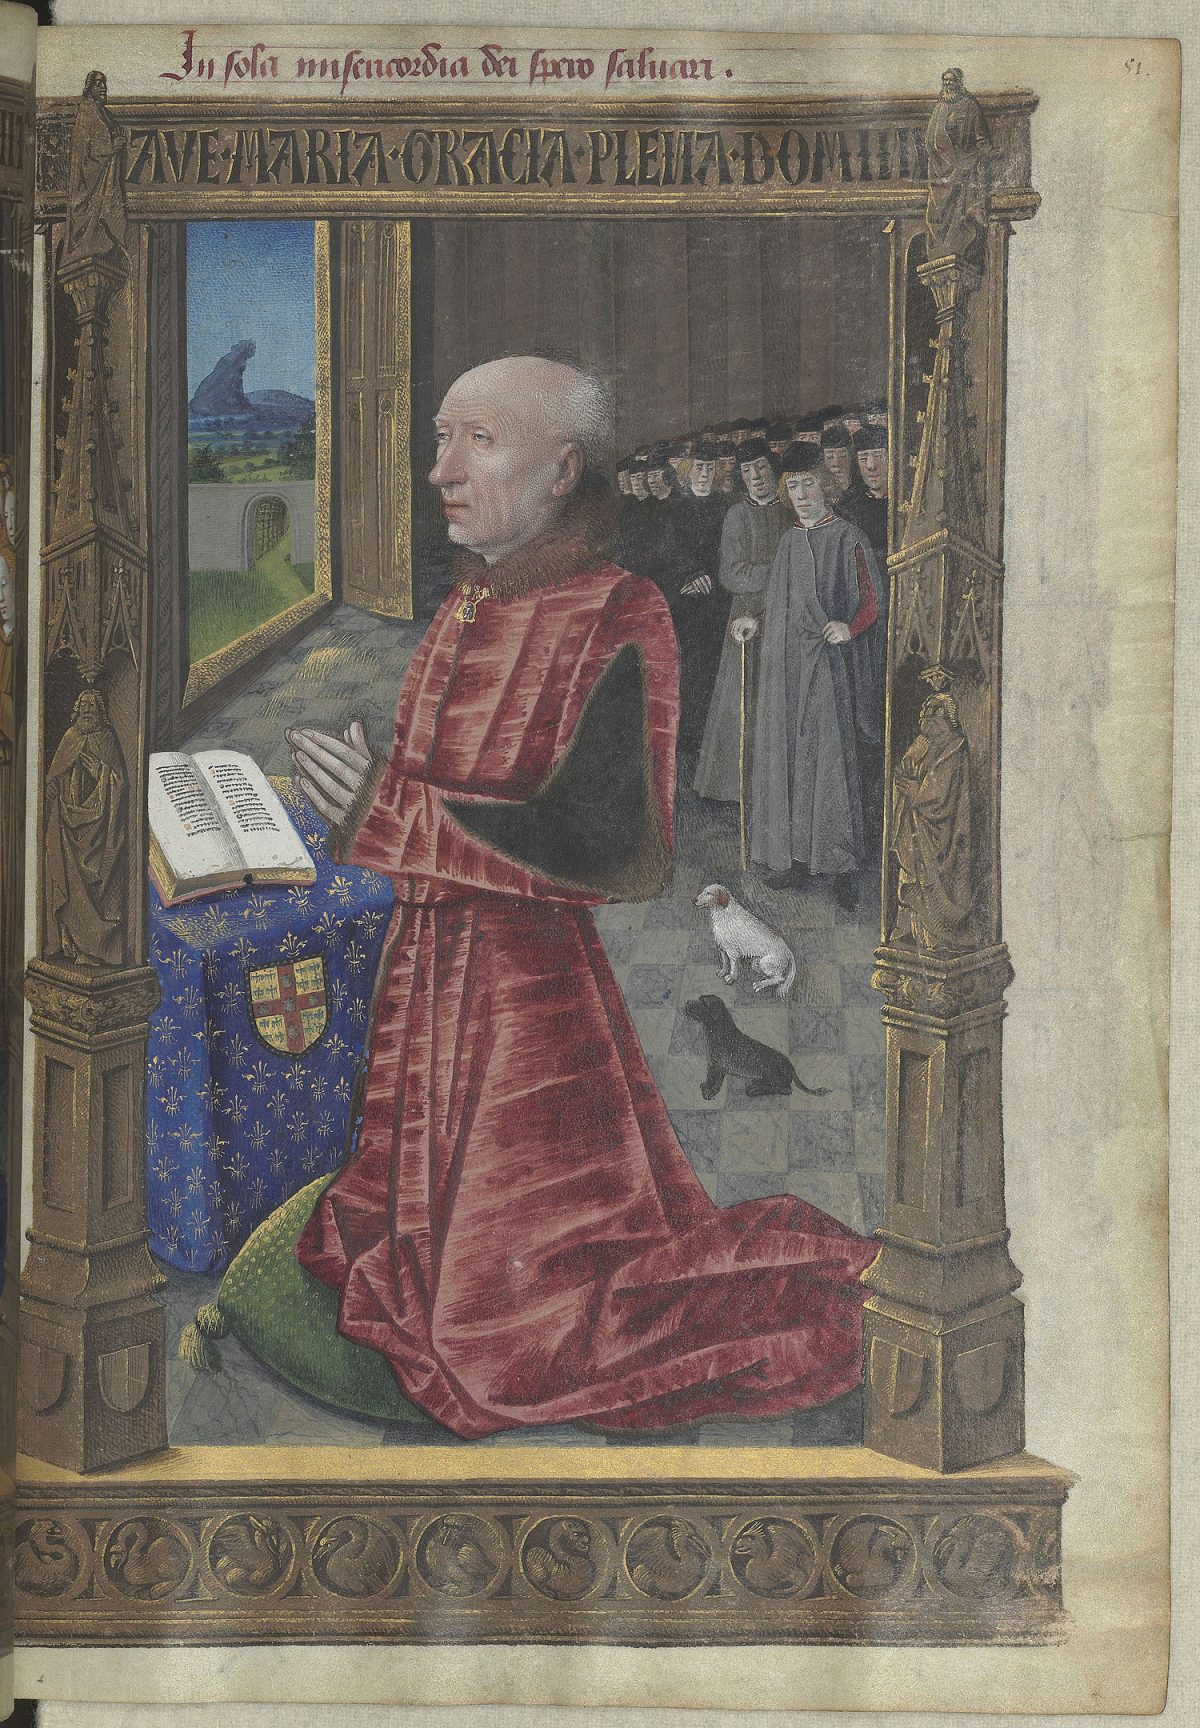 In sola misericordia dei spero saluari .
51.
AVE · MARIA · GRACIA · PLENA · DOMIN